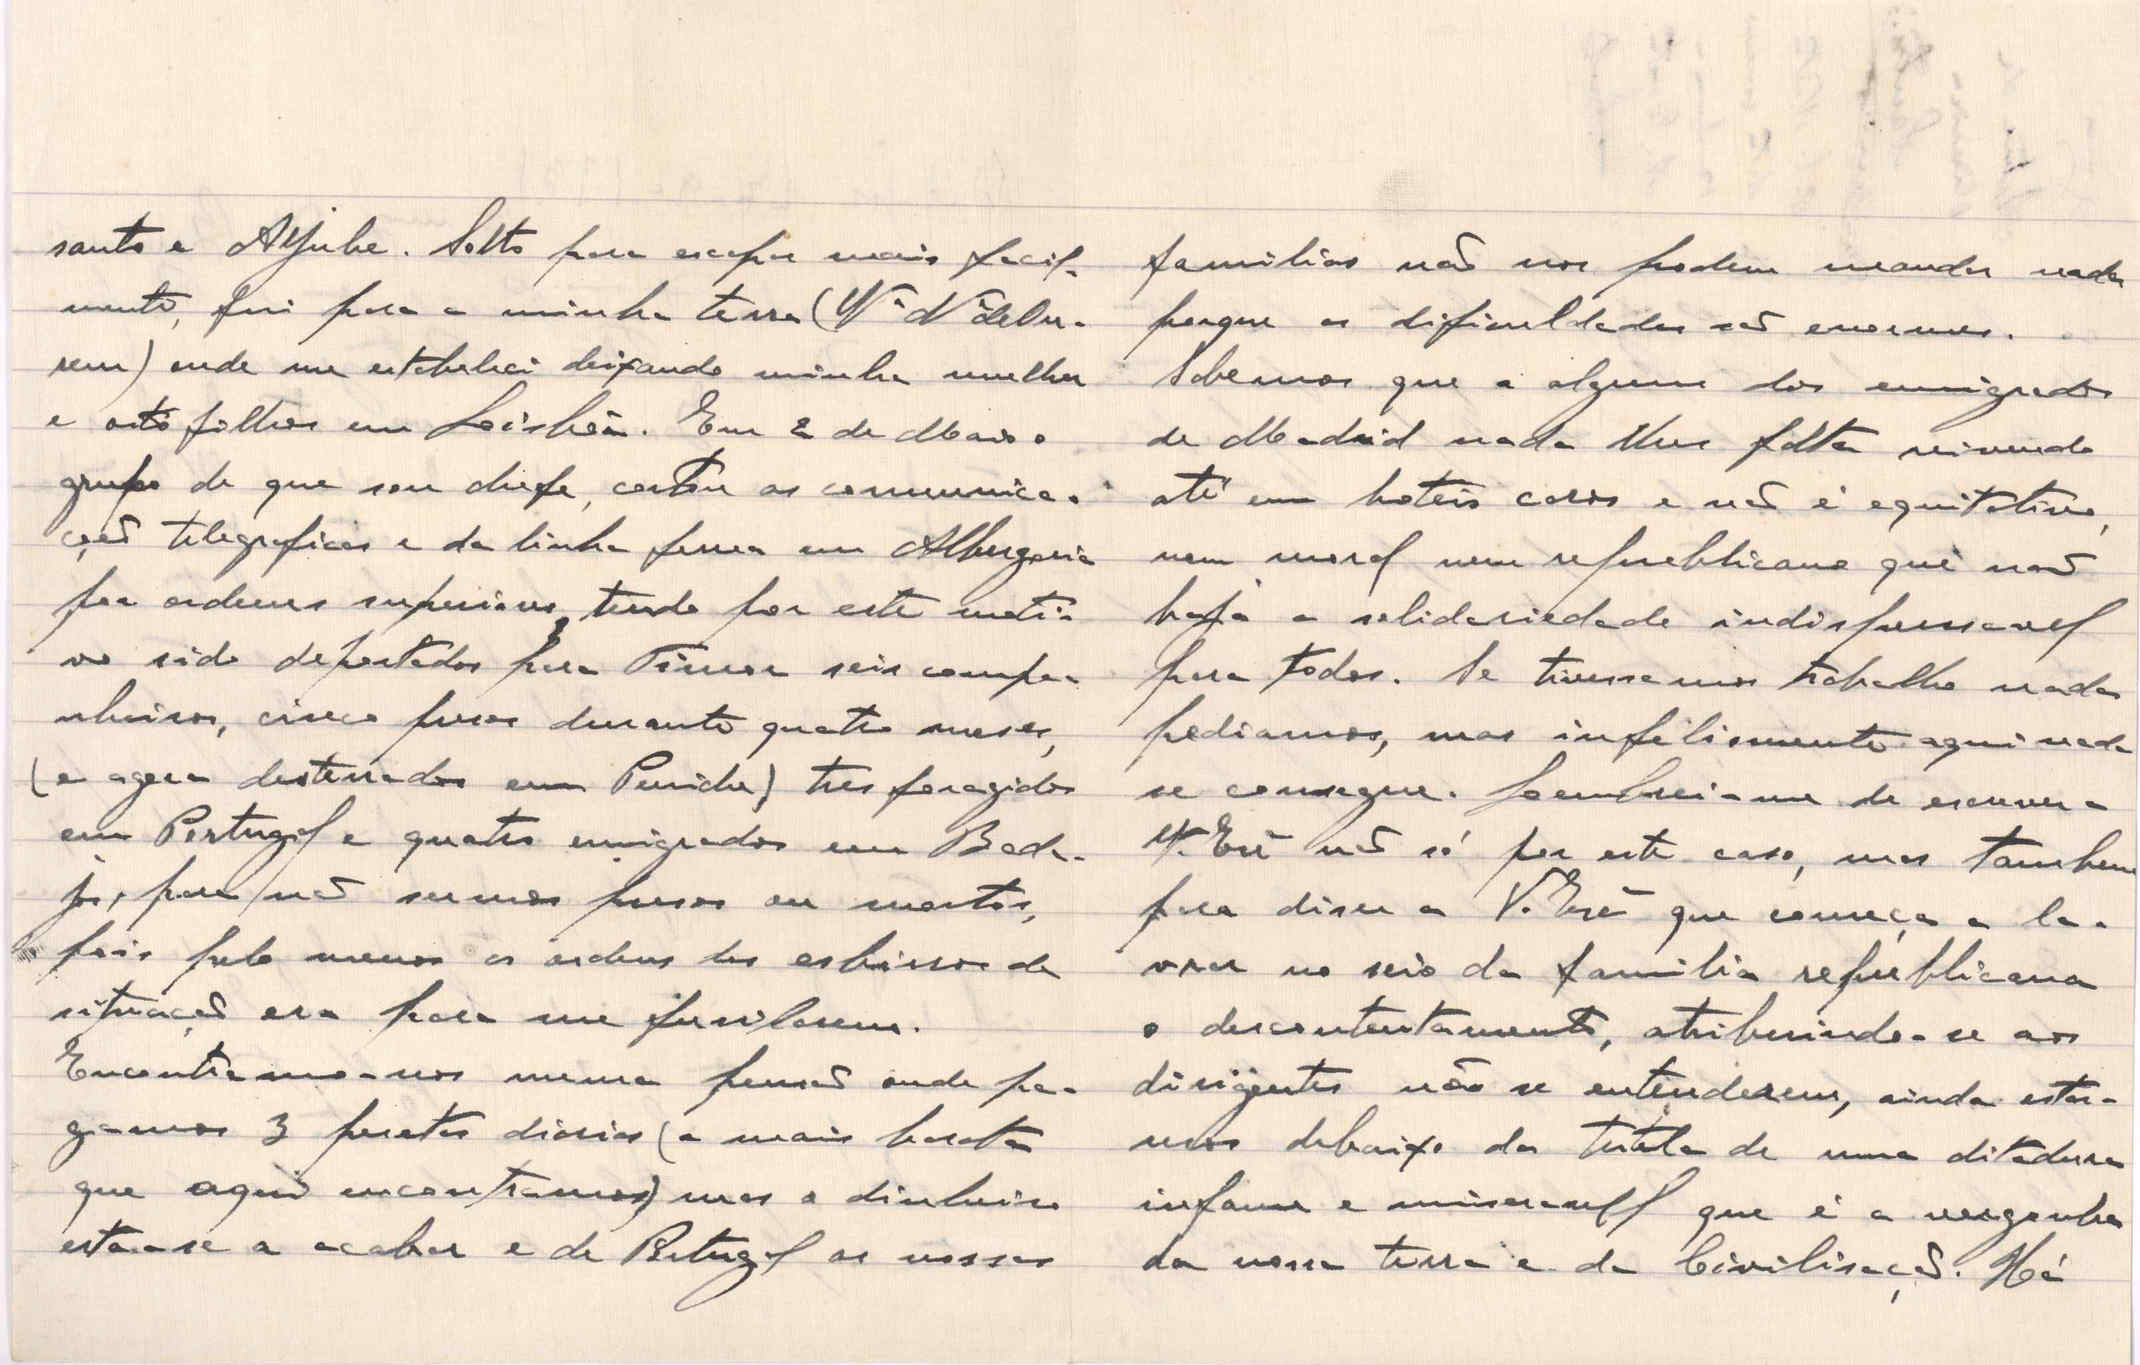 santo e Aljube. Solto para escapar mais facil-
mente, fui para a minha terra (Vª Nª de Ou-
rem) onde me estabeleci deixando minha mulher
e oito filhos em Lisbôa. Em 2 de Maio o
grupo de que sou chefe, cortou as communica-
ções telegraficas e da linha ferrea em Albergaria
por ordens superiores, tendo por este moti-
vo sido deportados para Timor seis compa-
nheiros, cinco presos durante quatro meses,
(e agora desterrados em Peniche) tres foragidos
em Portugal e quatro emigrados em Bada-
joz, para não sermos presos ou mortos,
pois pelo menos as ordens dos esbirros da
situação era para me fusilarem.
Encontramo-nos numa pensão onde pa-
gamos 3 pesetas diarias (a mais barata
que aqui encontramos) mas o dinheiro
esta-se a acabar e de Portugal as nossas
familias não nos podem mandar nada
porque as dificuldades são enormes.
Sabemos que a alguns dos emigrados
de Madrid nada lhes falta vivendo
até em hoteis caros e não é equitativo,
nem moral nem republicano que não
haja a solidariedade indispensavel
para todos. Se tivessemos trabalho nada
pediamos, mas infelismente aqui nada
se consegue. Lembrei-me de escrever a
V. Exª não só por este caso, mas tambem
para diser a V. Exª que começa a la-
vrar no seio da familia republicana
o descontentamento, atribuindo-se aos
dirigentes não se entenderem, ainda estar-
mos debaixo da tutela de uma ditadura
infame e miseravel que é a vergonha
da nossa terra e da Civilisação. Há